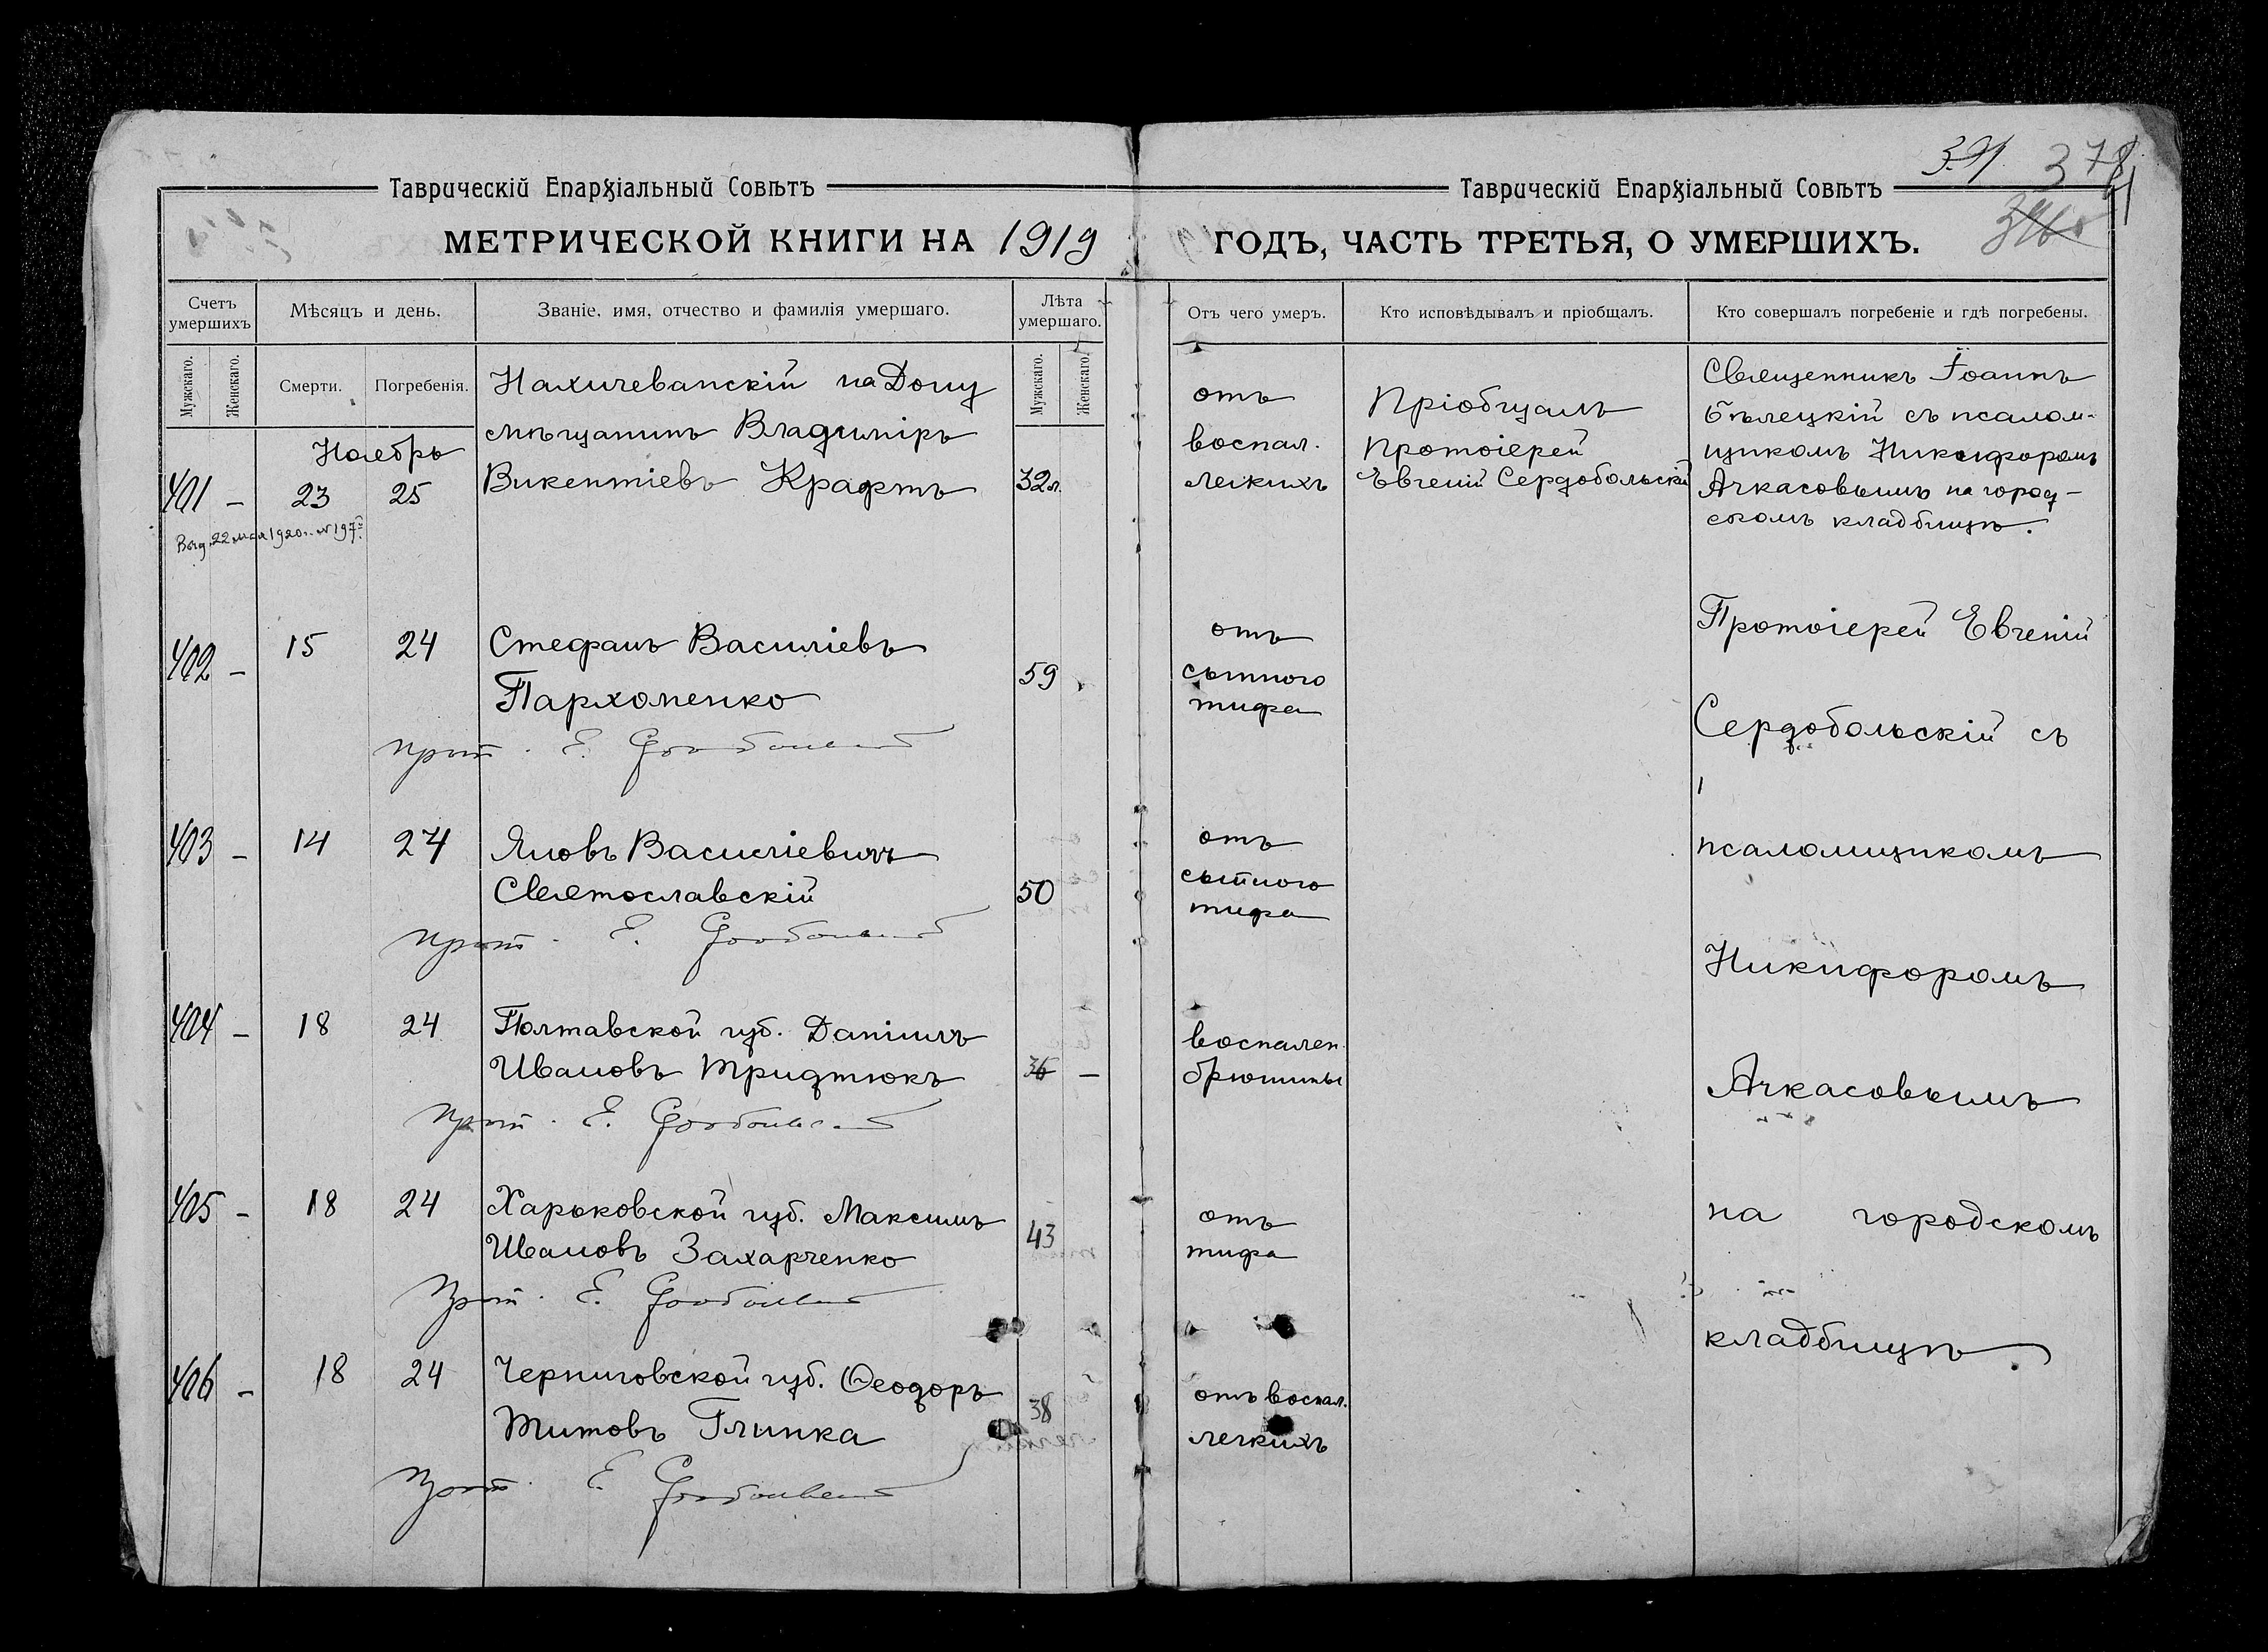 391 378
Таврическій Епархіальный Совѣтъ
Таврическій Епархіальный Совѣтъ
МЕТРИЧЕСКОЙ КНИГИ НА 1919
ГОДЪ, ЧАСТЬ ТРЕТЬЯ, О УМЕРШИХЪ.
Счетъ умершихъ
Мѣсяцъ и день.
Званіе, имя, отчество и фамилія умершаго.
Лѣта умершаго.
Отъ чего умеръ.
Кто исповѣдывалъ и пріобщалъ.
Кто совершалъ погребеніе и гдѣ погребены.
Мужскаго.
Женскаго.
Смерти.
Погребенія.
Мужскаго.
Женскаго.
Ноябрь
401 – 23 25
Нахичеванскій на Дону
мѣщанинъ Владиміръ
Викентіевъ Крафтъ
32 л.
отъ
воспал.
легкихъ
Пріобщалъ
Протоіерей
Евгеній Сердобольскій
Священникъ Іоаннъ
Бѣлецкій съ псалом-
щикомъ Никифоромъ
Ачкасовымъ на город-
скомъ кладбищѣ.
Выд. 22 мая 1920 г. № 197
402 – 15 24
Стефанъ Василіевъ
Пархоменко
59
отъ
сыпного
тифа
прот. Е. Сердобольскій
403 – 14 24
Яковъ Василіевичъ
Святославскій
50
отъ
сыпного
тифа
прот. Е. Сердобольскій
404 – 18 24
Полтавской губ. Даніилъ
Ивановъ Тридтюкъ
36 –
воспален.
брюшины
прот. Е. Сердобольскій
405 – 18 24
Харьковской губ. Максимъ
Ивановъ Захарченко
43
отъ
тифа
прот. Е. Сердобольскій
406 – 18 24
Черниговской губ. Ѳеодоръ
Титовъ Глинка
38
отъ воспал.
легкихъ
прот. Е. Сердобольскій
Протоіерей Евгеній
Сердобольскій съ
псаломщикомъ
Никифоромъ
Ачкасовымъ
на городскомъ
кладбищѣ